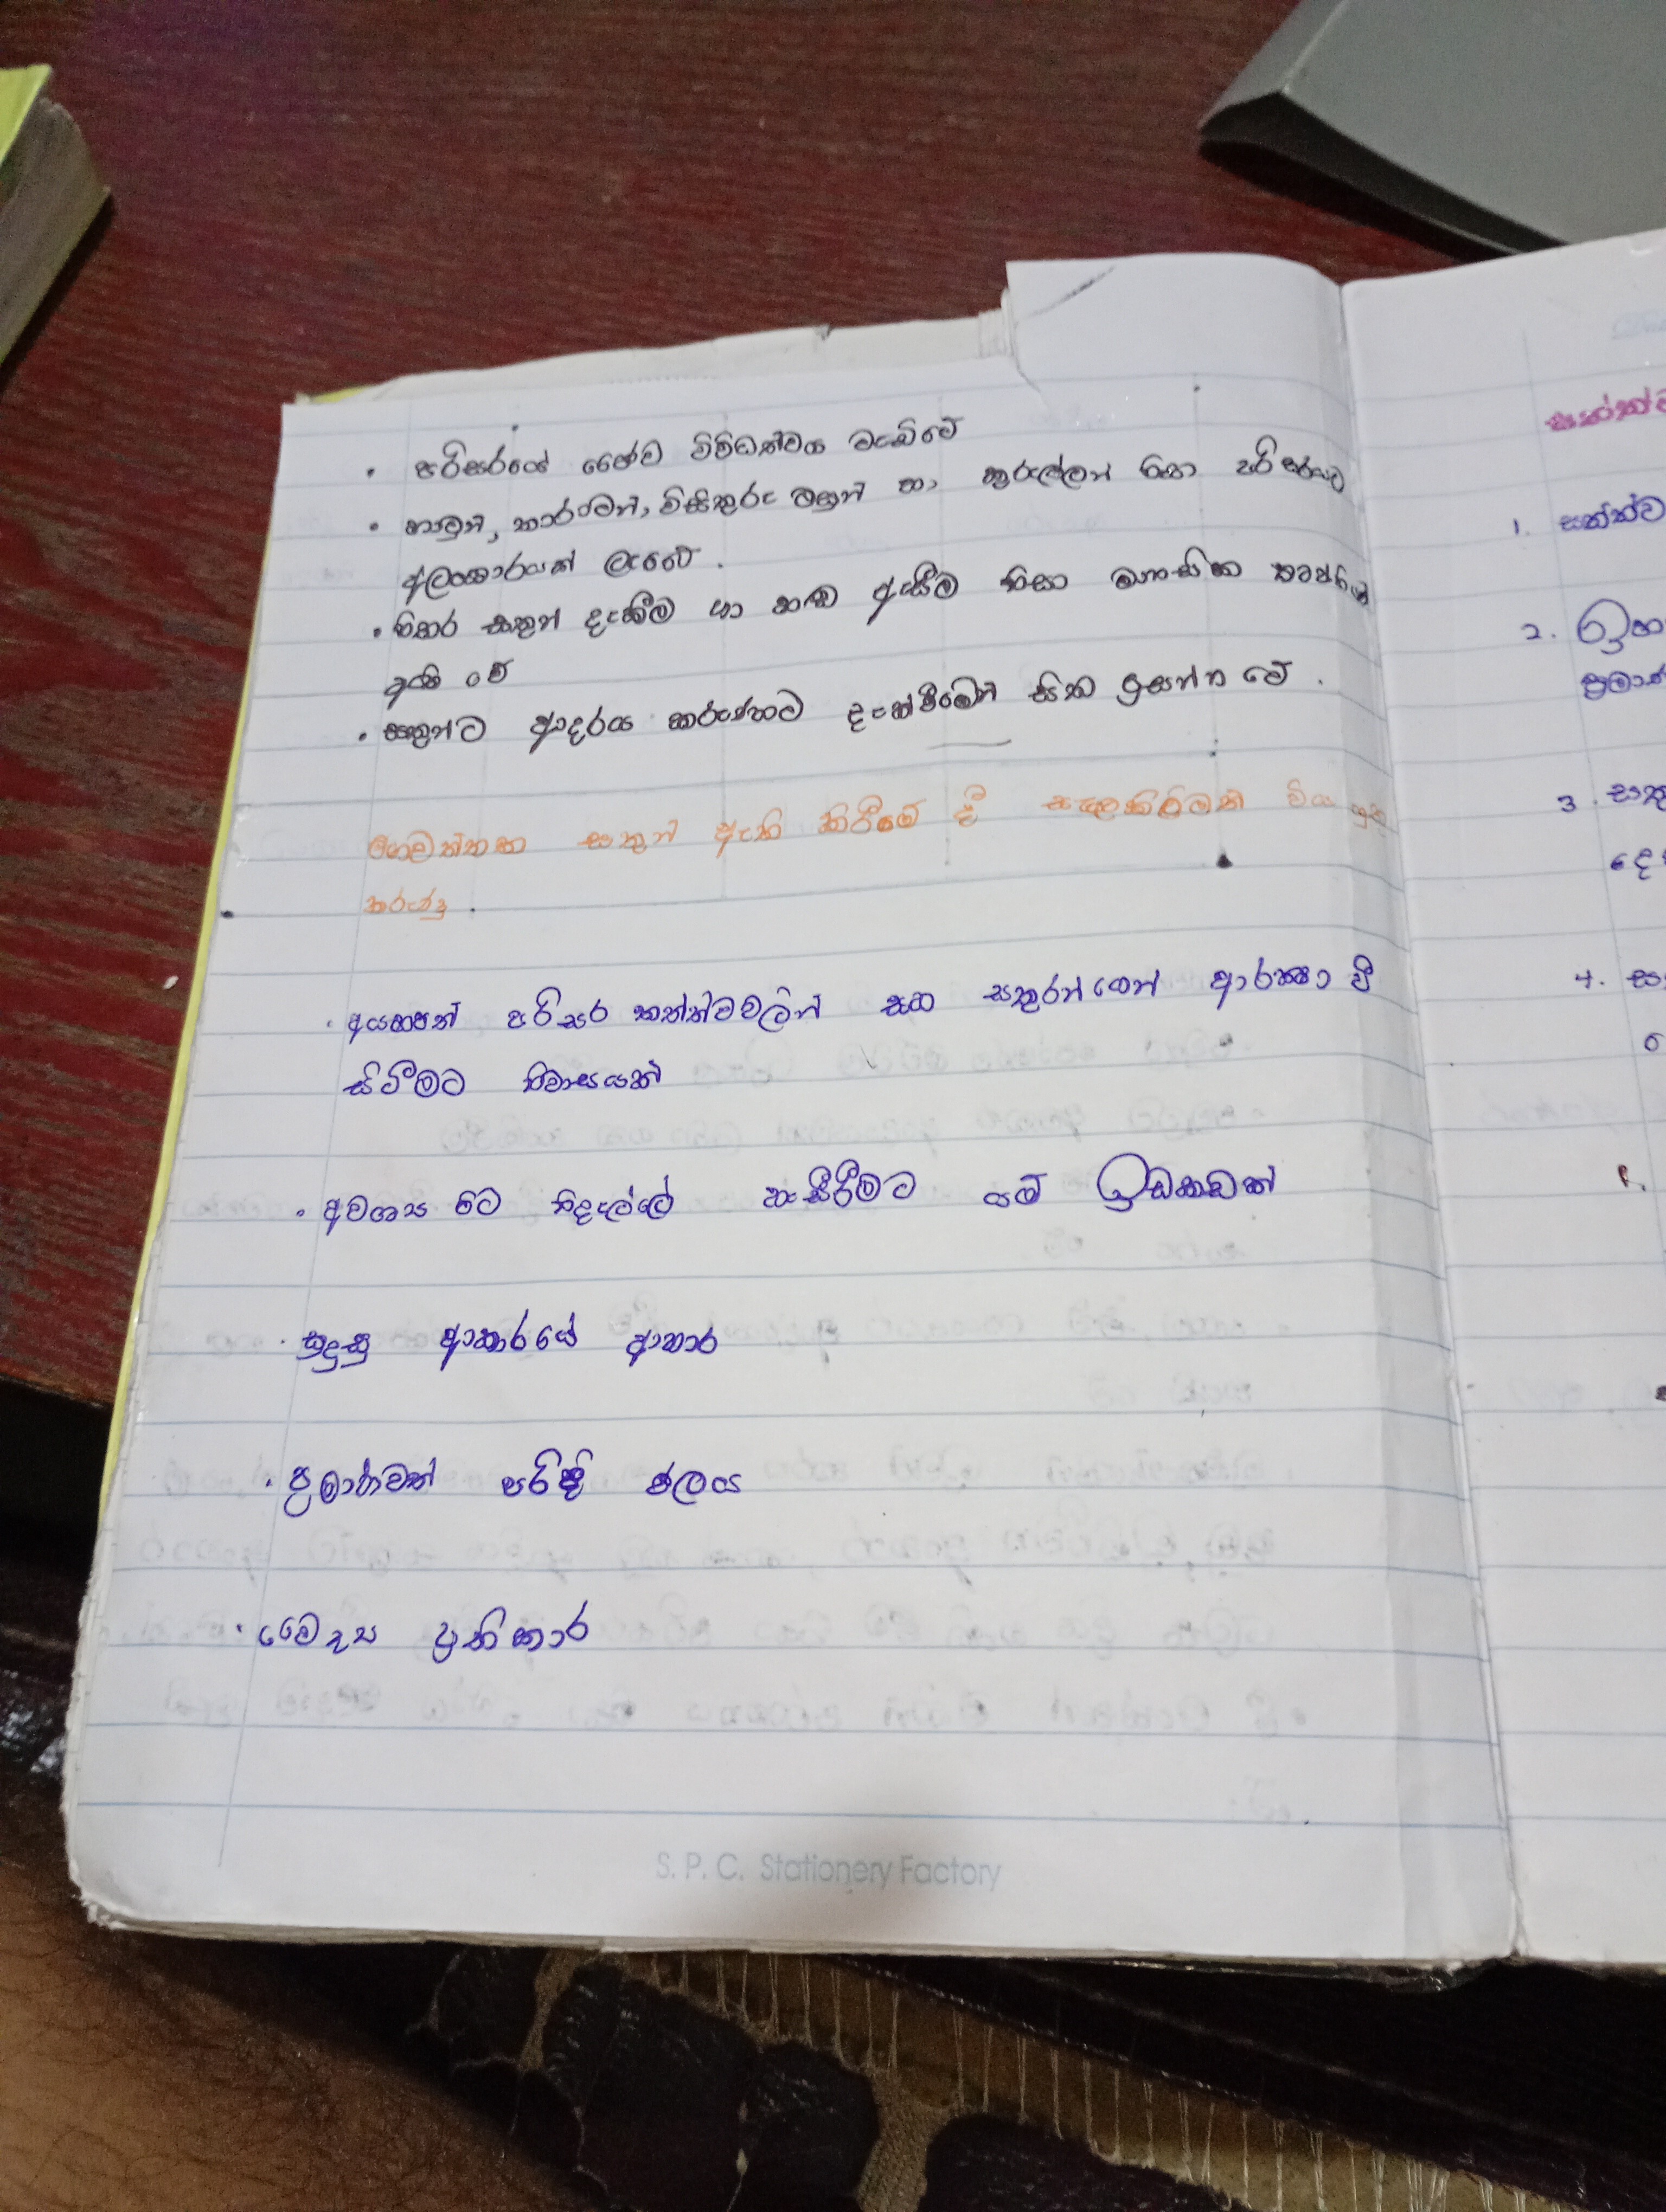 • පරිසරයේ ජෛව විවිධත්වය වැඩිවේ
• හාවුන්, තාරාවන්, විසිතුරු මසුන් හා කුරුල්ලන් නිසා පරිසරයට
අලංකාරයක් ලැබේ.
• නිතර සතුන් දැකීම හා හඬ ඇසීම නිසා මානසික
ඇති වේ
• සතුන්ට ආදරය කරුණාව දැක්වීමෙන් සිත ප්‍රසන්න වේ.
ගෙවත්තක සතුන් ඇති කිරීමේ දී සැලකිලිමත් විය යුතු
කරුණු.
• අයහපත් පරිසර තත්ත්වවලින් සහ සතුරන්ගෙන් ආරක්ෂා වී
සිටීමට නිවාසයක්
• අවශ්‍ය විට නිදැල්ලේ හැසිරීමට යම් ඉඩකඩක්
• සුදුසු ආකාරයේ ආහාර
• ප්‍රමාණවත් පරිදි ජලය
• වෛද්‍ය ප්‍රතිකාර
S. P. C. Stationery Factory
1. සත්ත්ව
2.
3. සතු
4. ස